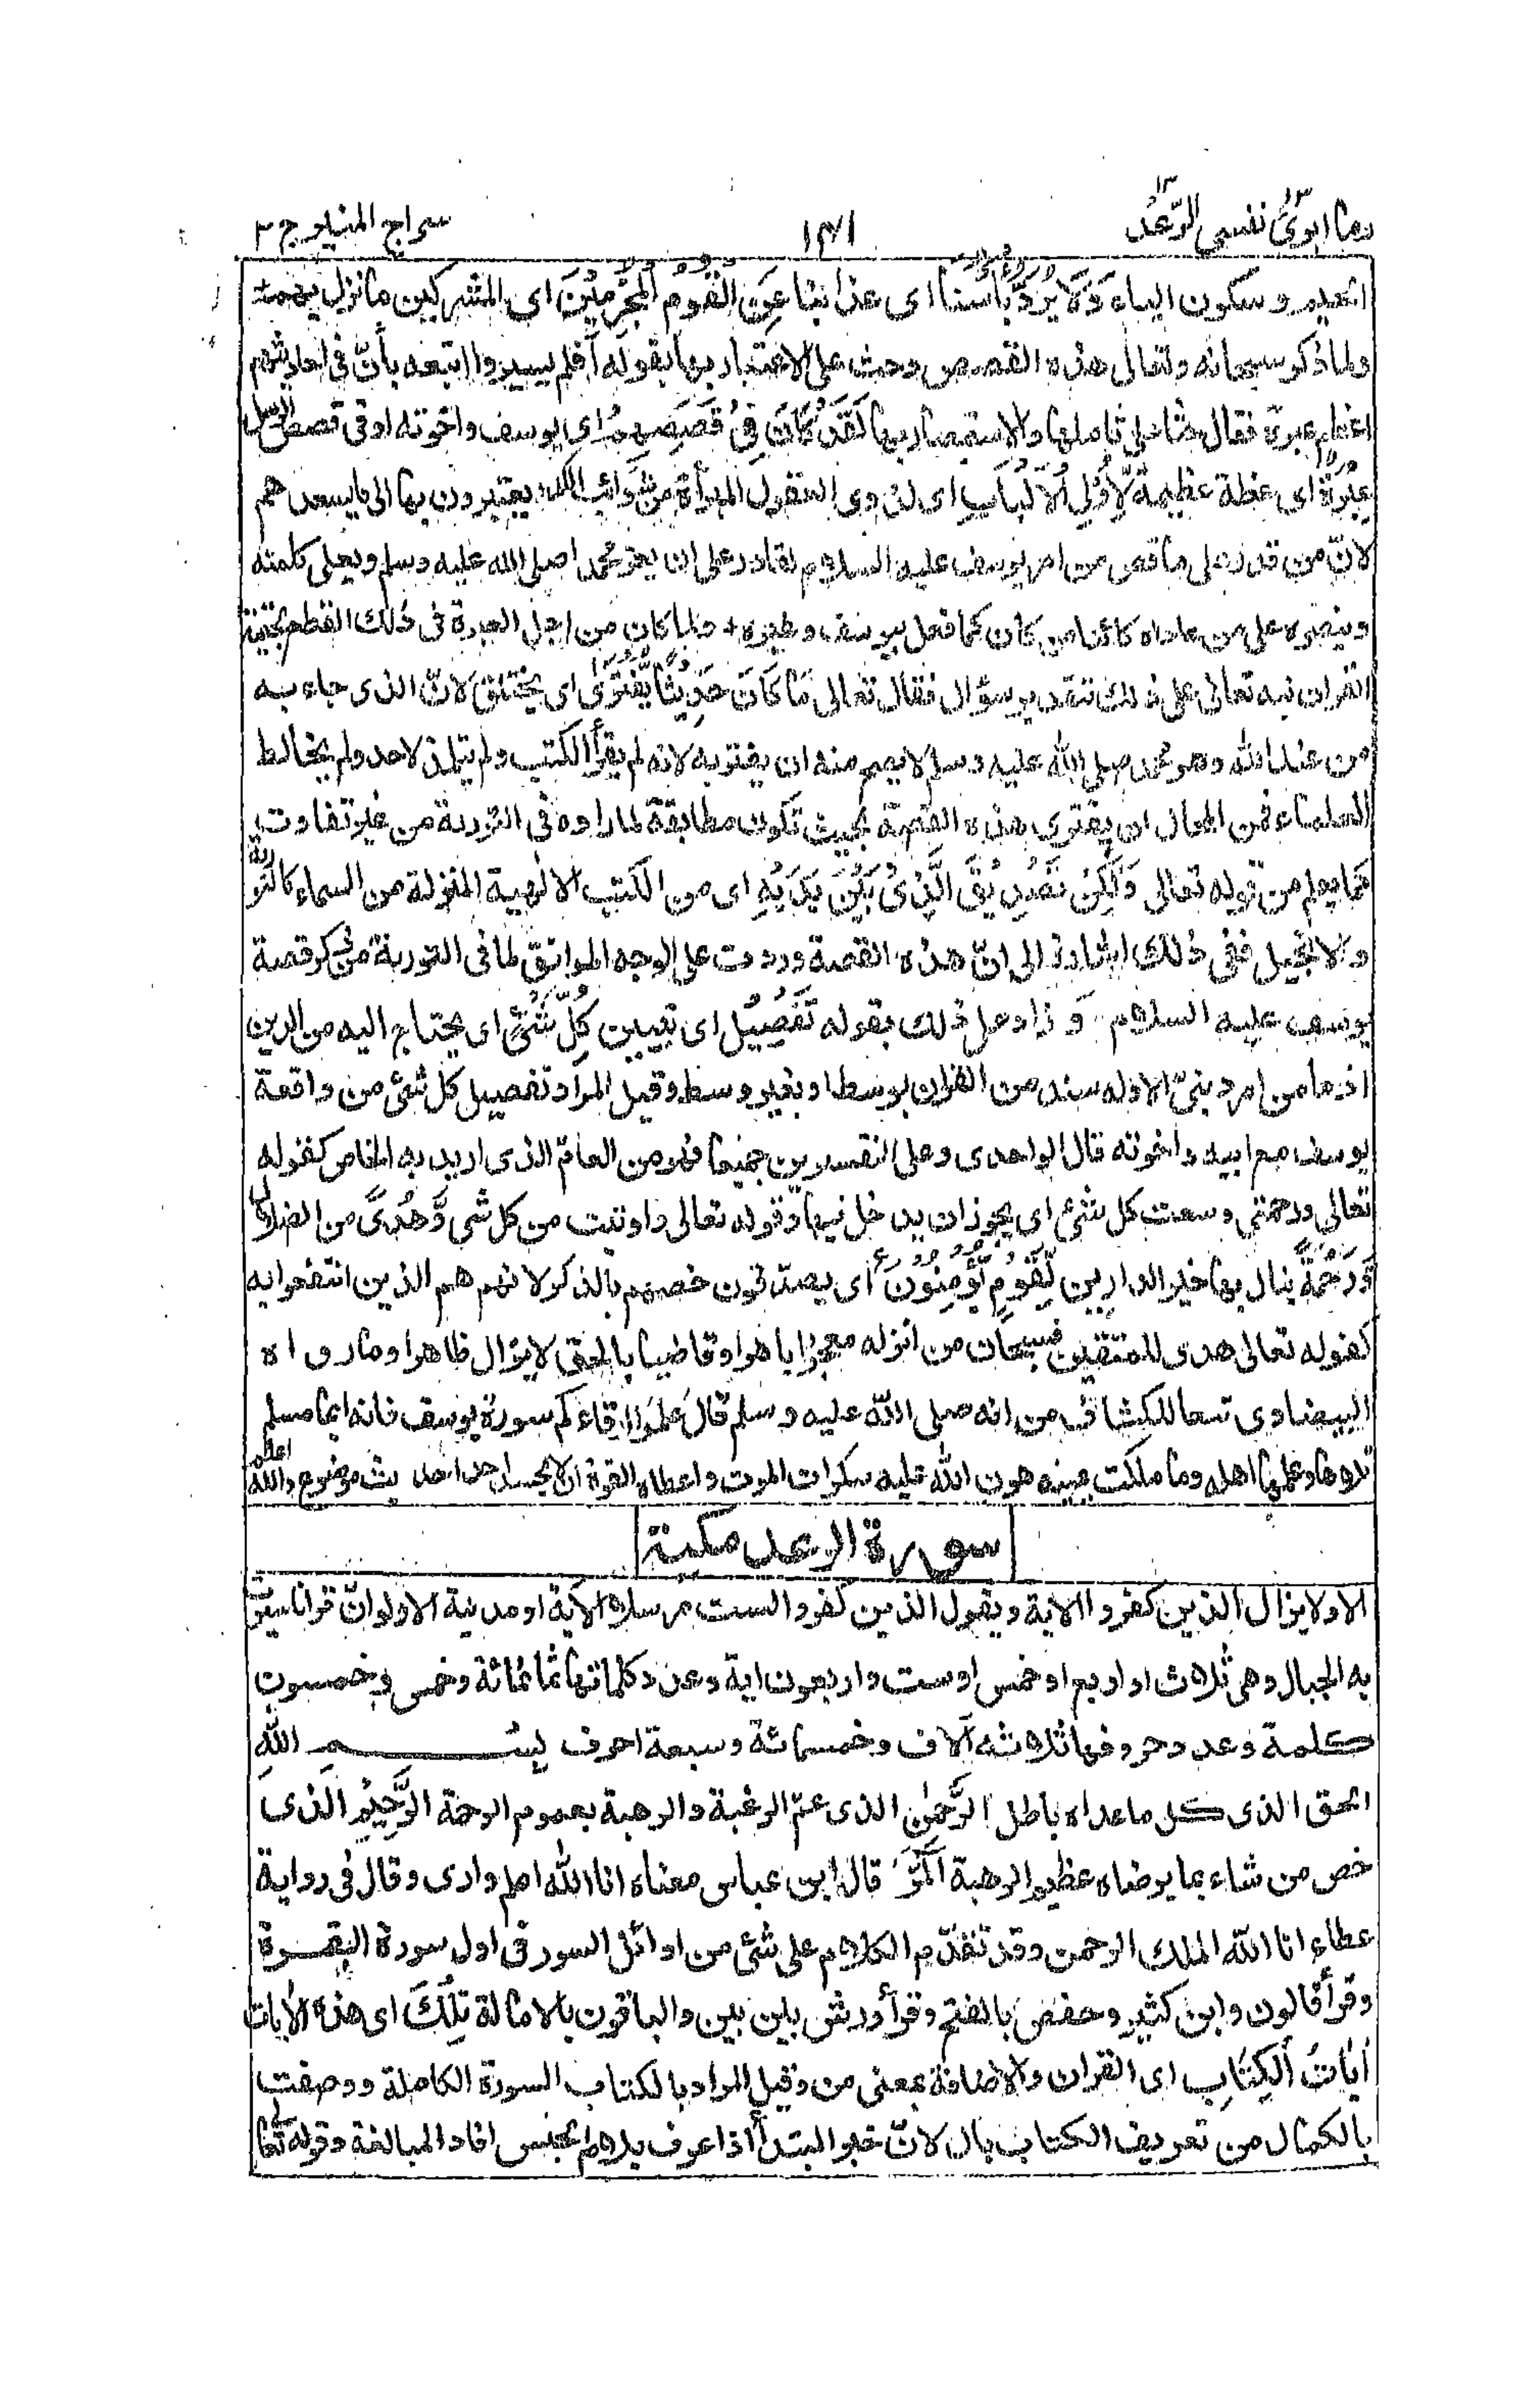 وما ابرئ نفسى ١٣ الرّعد ١٣
١٤١
سراج المنير ج ٢
الجيم وسكون الياء وَلَا يُرَدُّ بَأْسُنَا اى عذابنا عَنِ الْقَوْمِ الْمُجْرِمِيْنَ اى المشركين ما نزل بهم
ولما ذكر سبحانه وتعالى هذه القصص وحث على الاعتبار بها بقوله أفلم يسيروا اتبعه بأنّ فى احاديثهم
اعظم عبرة فقال حثا على تأملها والاستبصار بها لَقَدْ كَانَ فِىْ قَصَصِهِمْ اى يوسف واخوته او فى قصص الرسل
عِبْرَةٌ اى عظة عظيمة لِّأُولِى الْأَلْبَابِ اى لذوى العقول المبرأة من شوائب الكدر يعتبرون بها الى ما يسعدهم
لانّ من قدر على ما قص من امر يوسف عليه السلام لقادر على ان يعز محمدا صلى الله عليه وسلم ويعلى كلمته
وينصره على من عاداه كائنا من كان كما فعل بيوسف وغيره + ولما كان من اجل العبرة فى ذلك القطع بحقية
القران نبه تعالى على ذلك تقدير سؤال فقال تعالى مَا كَانَ حَدِيْثًا يُّفْتَرٰى اى يختلق لانّ الذى جاء به
من عند الله وهو محمد صلى الله عليه وسلم لا يصح منه ان يفتريه لانه لم يقرأ الكتب ولم يتلمذ لاحد ولم يخالط
العلماء فمن المحال ان يفترى هذه القصة بحيث تكون مطابقة لما راوه فى التورىة من غير تفاوت
كما يعلم من قوله تعالى وَلٰكِنْ تَصْدِيْقَ الَّذِىْ بَيْنَ يَدَيْهِ اى من الكتب الالهية المنزلة من السماء كالتورىة
والانجيل ففى ذلك اشارة الى انّ هذه القصة وردت على الوجه الموافق لما فى التورىة من ذكر قصة
يوسف عليه السلام وَ زاد على ذلك بقوله تَفْصِيْلَ اى تبيين كُلِّ شَىْءٍ اى يحتاج اليه من الدين
اذ ما من امر دينىّ الا وله سند من القران بوسط او بغير وسط وقيل المراد تفصيل كل شئ من واقعة
يوسف مع ابيه واخوته قال الواحدى وعلى التفسيرين جميعا فهو من العامّ الذى اريد به الخاص كقوله
تعالى ورحمتى وسعت كل شئ اى يجوز ان يدخل فيها وقوله تعالى واوتيت من كل شى وَّهُدًى من الضلال
وَّرَحْمَةً ينال بها خير الدارين لِّقَوْمٍ يُّؤْمِنُوْنَ اى يصدّقون خصهم بالذكر لانهم هم الذين انتفعوا به
كقوله تعالى هدى للمتقين فسبحان من انزله معجزا باهرا وقاضيا بالحق لا يزال ظاهرا وما رواه
البيضاوى تبعا للكشاف من انه صلى الله عليه وسلم قال علموا ارقاءكم سورة يوسف فانه ايما مسلم
تلاها وعلمها اهله وما ملكت يمينه هون الله عليه سكرات الموت واعطاه القوة ان لا يحسد احدا حديث موضوع والله اعلم
سورة الرعد مكية
الا ولا يزال الذين كفروا الاية ويقول الذين كفروا لست مرسلا الاية او مدنية الا ولو انّ قرانا سيرت
به الجبال وهى ثلاث او اربع او خمس او ست واربعون اية وعدد كلماتها ثمانمائة وخمس وخمسون
كلمة وعدد حروفها ثلاثة آلاف وخمسمائة وسبعة احرف بِسْمِ اللهِ
الحق الذى كل ما عداه باطل الرَّحْمٰنِ الذى عمّ الرغبة والرهبة بعموم الرحمة الرَّحِيْمِ الذى
خص من شاء بما يرضاه عظيم الرهبة الٓمّٓرٰ قال ابن عباس معناه انا الله اعلم وارى وقال فى رواية
عطاء انا الله الملك الرحمن وقد تقدّم الكلام على شئ من اوائل السور فى اول سورة البقرة
وقرأ قالون وابن كثير وحفص بالفتح وقرأ ورش بين بين والباقون بالامالة تِلْكَ اى هذه الايات
اٰيَاتُ الْكِتَابِ اى القران والاضافة بمعنى من وقيل المراد بالكتاب السورة الكاملة ووصفت
بالكمال من تعريف الكتاب بال لانّ خبر المبتدأ اذا عرف بلام الجنس افاد المبالغة وقوله تعالى